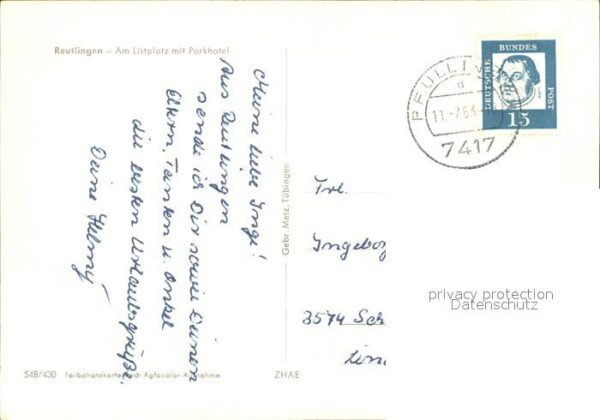 Reutlingen – Am Listplatz mit Parkhotel
Meine liebe Inge!
Aus Reutlingen
sende ich Dir sowie Deinen
Eltern, Tanten u. Onkel
die besten Urlaubsgrüße.
Deine Helmy
Gebr. Metz, Tübingen
DEUTSCHE
BUNDES
POST
15
PFULLI
d
7417
Frl.
Ingebor
3574 Sch
Lin
privacy protection
Datenschutz
548/430 Farbphotokarte nach Agfacolor-Aufnahme
ZHAE